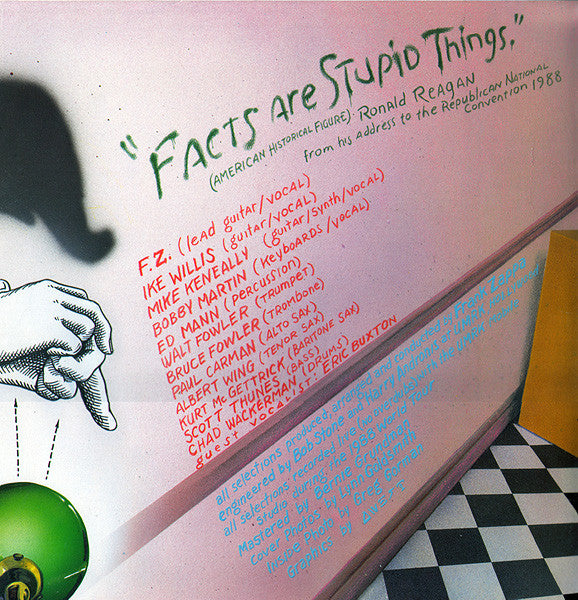 "FACTS are STUPID THINGS."
(AMERICAN HISTORICAL FIGURE) - RONALD REAGAN
from his address to the REPUBLICAN NATIONAL
CONVENTION 1988
F.Z. (lead guitar/VOCAL)
IKE WILLIS (guitar/VOCAL)
MIKE KENEALLY (guitar/synth/VOCAL)
BOBBY MARTIN (Keyboards/VOCAL)
ED MANN (percussion)
WALT FOWLER (TRumpet)
BRUCE FOWLER (Trombone)
PAUL CARMAN (ALTO SAX)
ALBERT WING (TENOR SAX)
KURT McGETTRICK (BARITONE SAX)
SCOTT THUNES (BASS)
CHAD WACKERMAN (DRUMS)
guest vocalist: ERIC BUXTON
all selections produced, arranged and conducted by Frank Zappa
engineered by Bob Stone and Harry Andronis at UMRK
all selections recorded live (no overdubs) with the UMRK mobile
Studio during the 1988 World Tour
Mastered by Bernie Grundman
Cover Photos by Lynn Goldsmith
Inside Photo by Greg Gorman
Graphics by